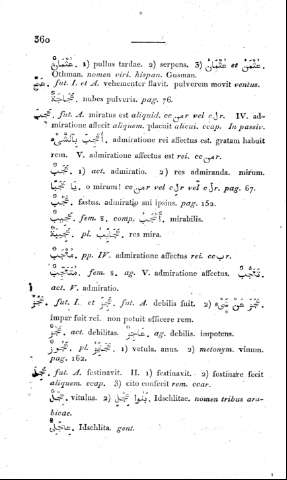 360
عُثْمَانُ. 1) pullus tardae. 2) serpens. 3) عُثْمَنُ et عُثْمَانُ.
Othman. nomen viri. hispan. Gusman.
عَجَّ. fut. I. et A. vehementer flavit. pulverem movit ventus.
عَجَاجَةٌ. nubes pulveris. pag. 76.
عَجِبَ. fut. A. miratus est aliquid. cc من vel ل r. IV. ad-
miratione affecit aliquem. placuit alicui. ccap. In passiv.
أُعْجِبَ بِالشَّيْءِ. admiratione rei affectus est. gratam habuit
rem. V. admiratione affectus est rei. cc من r.
عَجَبٌ. 1) act. admiratio. 2) res admiranda. mirum.
يَا عَجَبًا. o mirum! cc من r vel ل r vel r. pag. 67.
عُجْبٌ. fastus. admiratio sui ipsius. pag. 152.
عَجِيبٌ. fem. s. comp. أَعْجَبُ. mirabilis.
عَجِيبَةٌ. pl. عَجَائِبُ. res mira.
مُعْجَبٌ. pp. IV. admiratione affectus rei. cc ب r.
مُتَعَجِّبٌ. fem. s. ag. V. admiratione affectus. تَعَجُّبٌ.
act. V. admiratio.
عَجَزَ. fut. I. et عَجِزَ. fut. A. debilis fuit. 2) عَجَزَ عَنْ شَيْءٍ.
impar fuit rei. non potuit efficere rem.
عَجْزٌ. act. debilitas. عَاجِزٌ. ag. debilis. impotens.
عَجُوزٌ. pl. عَجَائِزُ. 1) vetula. anus. 2) metonym. vinum.
pag. 162.
عَجِلَ. fut. A. festinavit. II. 1) festinavit. 2) festinare fecit
aliquem. ccap. 3) cito confecit rem. ccar.
عِجْلٌ. vitulus. 2) بَنُوا عِجْلٍ. Idschlitae. nomen tribus ara-
bicae.
عِجْلِيٌّ. Idschlita. gent.